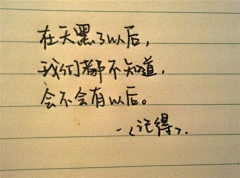 在天黑了以后，
我们都不知道，
会不会有以后。
—<记得>.